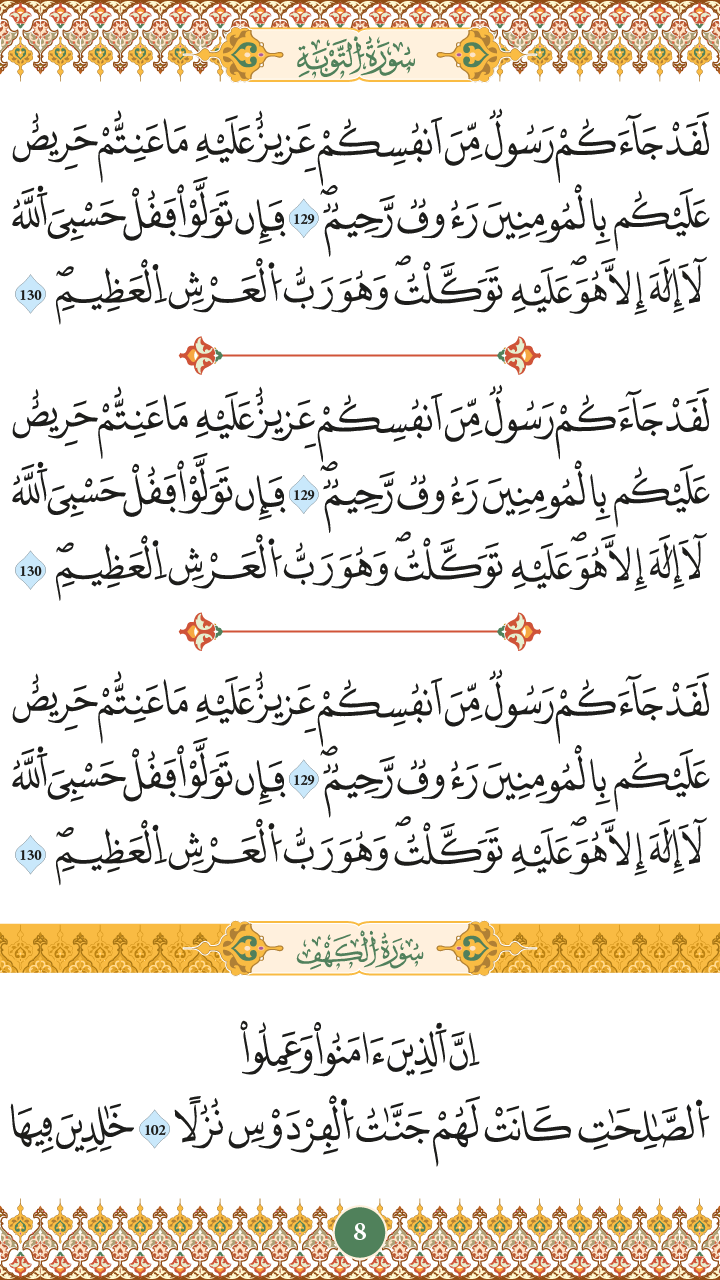 سُورَةُ التَّوْبَةِ
لَقَدْ جَآءَكُمْ رَسُولٌ مِّنَ اَنفُسِكُمْ عَزِيزٌ عَلَيْهِ مَا عَنِتُّمْ حَرِيصٌ
عَلَيْكُم بِالْمُومِنِينَ رَءُوفٌ رَّحِيمٌ 129 فَإِن تَوَلَّوْاْ فَقُلْ حَسْبِيَ اَ۬للَّهُ
لَآ إِلَٰهَ إِلَّا هُوَ عَلَيْهِ تَوَكَّلْتُ وَهُوَ رَبُّ اُ۬لْعَرْشِ اِ۬لْعَظِيمِ 130
لَقَدْ جَآءَكُمْ رَسُولٌ مِّنَ اَنفُسِكُمْ عَزِيزٌ عَلَيْهِ مَا عَنِتُّمْ حَرِيصٌ
عَلَيْكُم بِالْمُومِنِينَ رَءُوفٌ رَّحِيمٌ 129 فَإِن تَوَلَّوْاْ فَقُلْ حَسْبِيَ اَ۬للَّهُ
لَآ إِلَٰهَ إِلَّا هُوَ عَلَيْهِ تَوَكَّلْتُ وَهُوَ رَبُّ اُ۬لْعَرْشِ اِ۬لْعَظِيمِ 130
لَقَدْ جَآءَكُمْ رَسُولٌ مِّنَ اَنفُسِكُمْ عَزِيزٌ عَلَيْهِ مَا عَنِتُّمْ حَرِيصٌ
عَلَيْكُم بِالْمُومِنِينَ رَءُوفٌ رَّحِيمٌ 129 فَإِن تَوَلَّوْاْ فَقُلْ حَسْبِيَ اَ۬للَّهُ
لَآ إِلَٰهَ إِلَّا هُوَ عَلَيْهِ تَوَكَّلْتُ وَهُوَ رَبُّ اُ۬لْعَرْشِ اِ۬لْعَظِيمِ 130
سُورَةُ الْكَهْفِ
إِنَّ اَ۬لذِينَ ءَامَنُواْ وَعَمِلُواْ
اُ۬لصَّٰلِحَٰتِ كَانَتْ لَهُمْ جَنَّٰتُ اُ۬لْفِرْدَوْسِ نُزُلًا 102 خَٰلِدِينَ فِيهَا
8